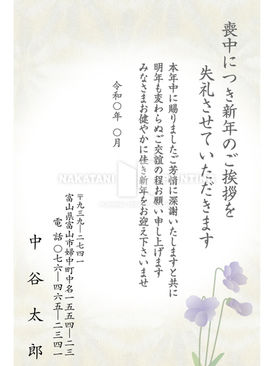 喪中につき新年のご挨拶を
失礼させていただきます
本年中に賜りましたご芳情に深謝いたしますと共に
明年も変わらぬご交誼の程お願い申し上げます
みなさまお健やかに佳き新年をお迎え下さいませ
令和〇年 〇月
〒九三九―二七四一
富山県富山市婦中町中名一五五四―二三
電話〇七六―四六五―二三四一
中谷 太郎
NAKATANI PRINTING